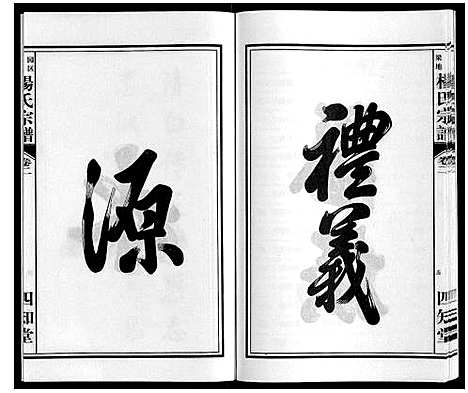 梁地 楊氏宗譜 卷二 四知堂
禮義
源
园区 楊氏宗譜 卷二 四知堂